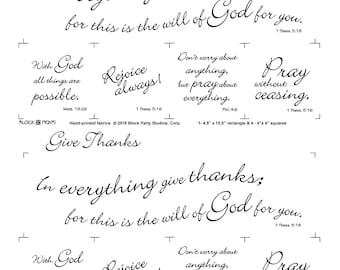 for this is the will of God for you.
1 Thess. 5:18
With God
all things are
possible.
Matt. 19:26
Rejoice
always!
1 Thess. 5:16
Don't worry about
anything,
but pray about
everything.
Phil. 4:6
Pray
without
ceasing.
1 Thess. 5:17
BLOCK PARTY Hand-printed fabrics © 2018 Block Party Studios, Corp. 1- 4.5" x 13.5" rectangle & 4 - 4" x 4" squares
Give Thanks
In everything give thanks;
for this is the will of God for you.
1 Thess. 5:18
With God
all things are
Rejoice
always!
Don't worry about
anything,
Pray